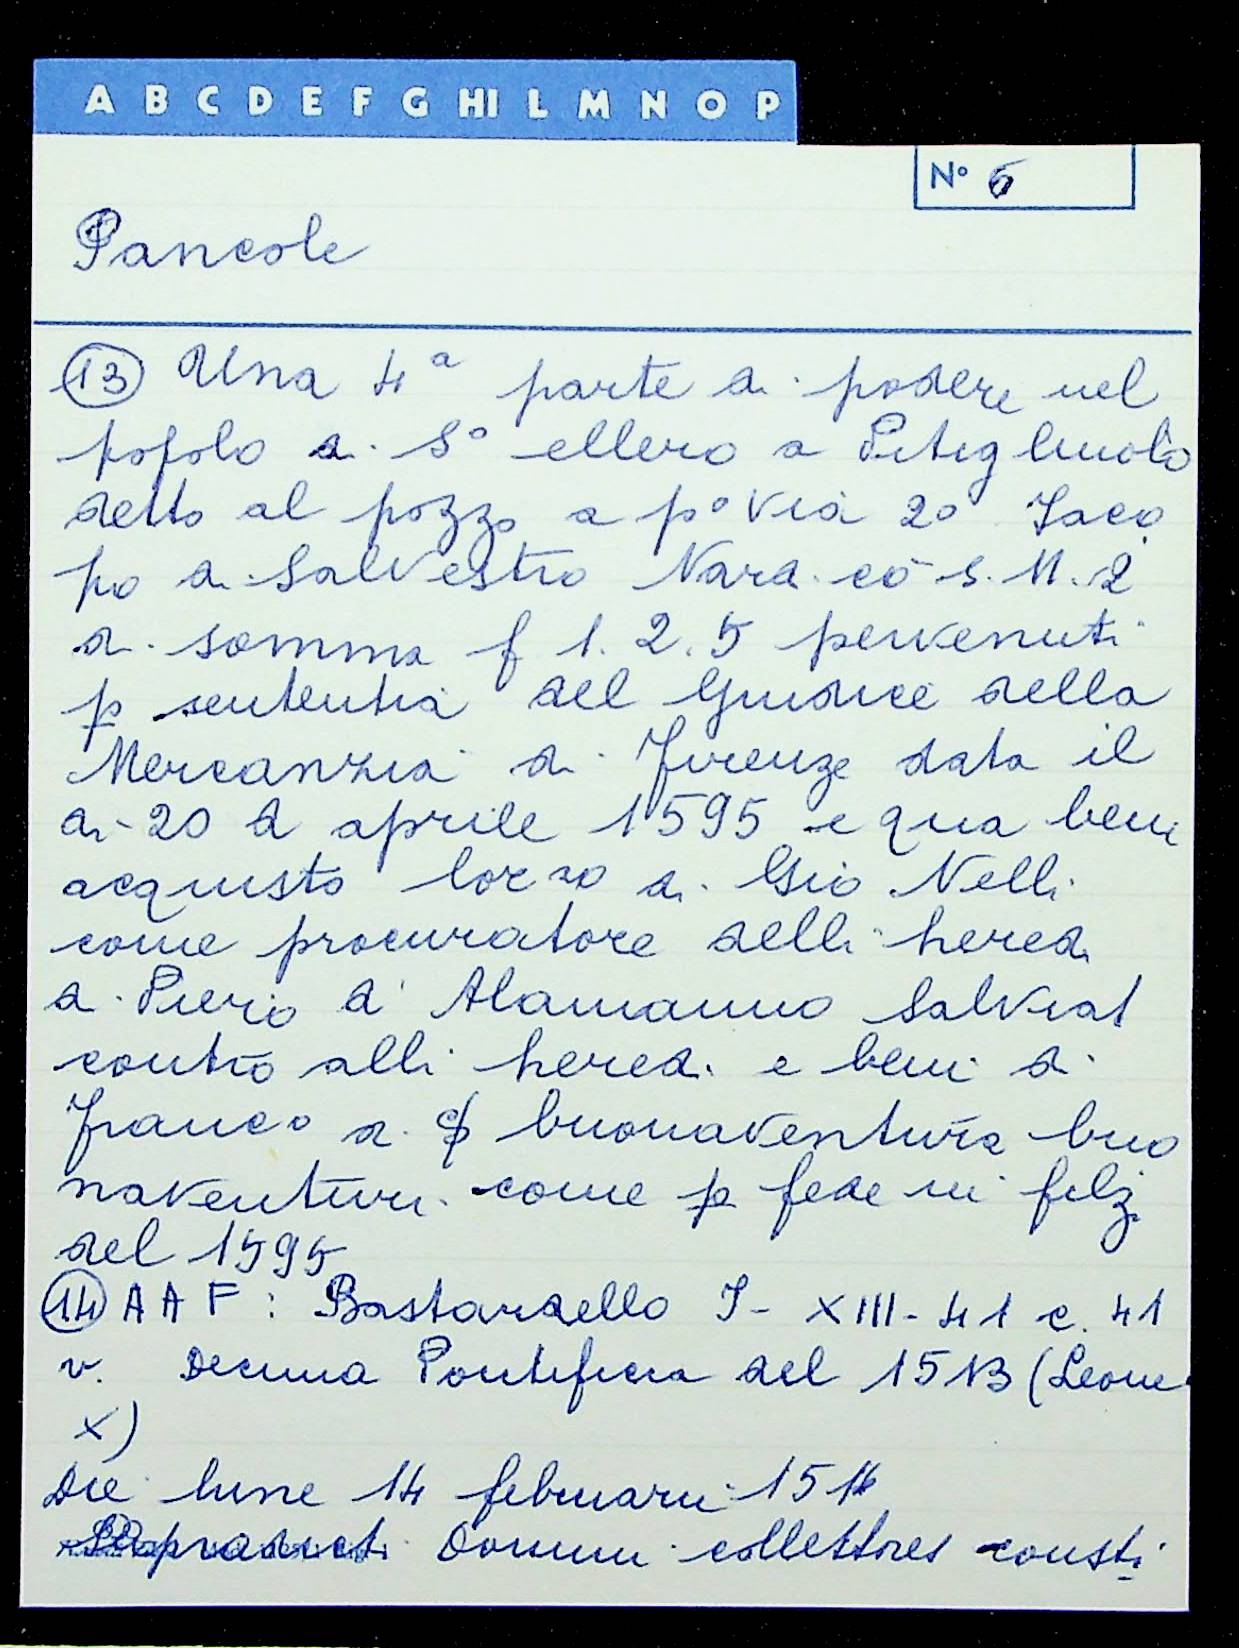 A B C D E F G HI L M N O P
N° 6
Pancole
13 Una 4a parte di podere nel
popolo di S° ellero a Pitigliuolo
detto al pozzo a p° via 2° Jaco
po di Salvestro Nardi cō s. M. 2
di somma f 1. 2. 5 pervenuti
p sententia del Giudice della
Mercanzia di Firenze data il
di 20 d aprile 1595 e qua beni
acquisto Lorzo di Gio Nelli
come procuratore delli heredi
di Piero d' Alamanno Salviat
contro alli heredi e beni di
Franc° di buonaventura buo
naventuri come p fede in filz
del 1595
14 A A F : Bastardello I - XIII - 41 c. 41
v. Decima Pontificia del 1513 (Leone
X)
Die lune 14 februarii 151
predicti Domini collettores consti